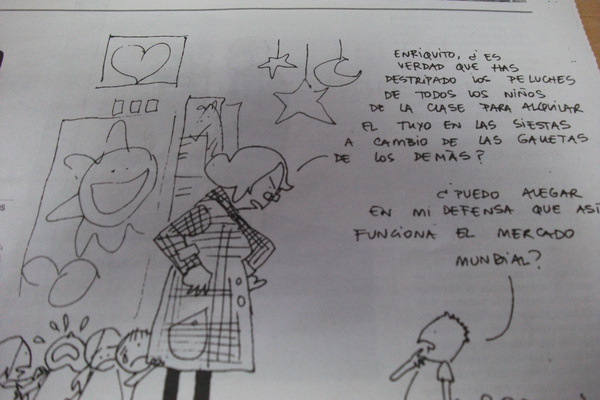 ENRIQUITO, ¿ES
VERDAD QUE HAS
DESTRIPADO LOS PELUCHES
DE TODOS LOS NIÑOS
DE LA CLASE PARA ALQUILAR
EL TUYO EN LAS SIESTAS
A CAMBIO DE LAS GALLETAS
DE LOS DEMÁS?
¿PUEDO ALEGAR
EN MI DEFENSA QUE ASÍ
FUNCIONA EL MERCADO
MUNDIAL?